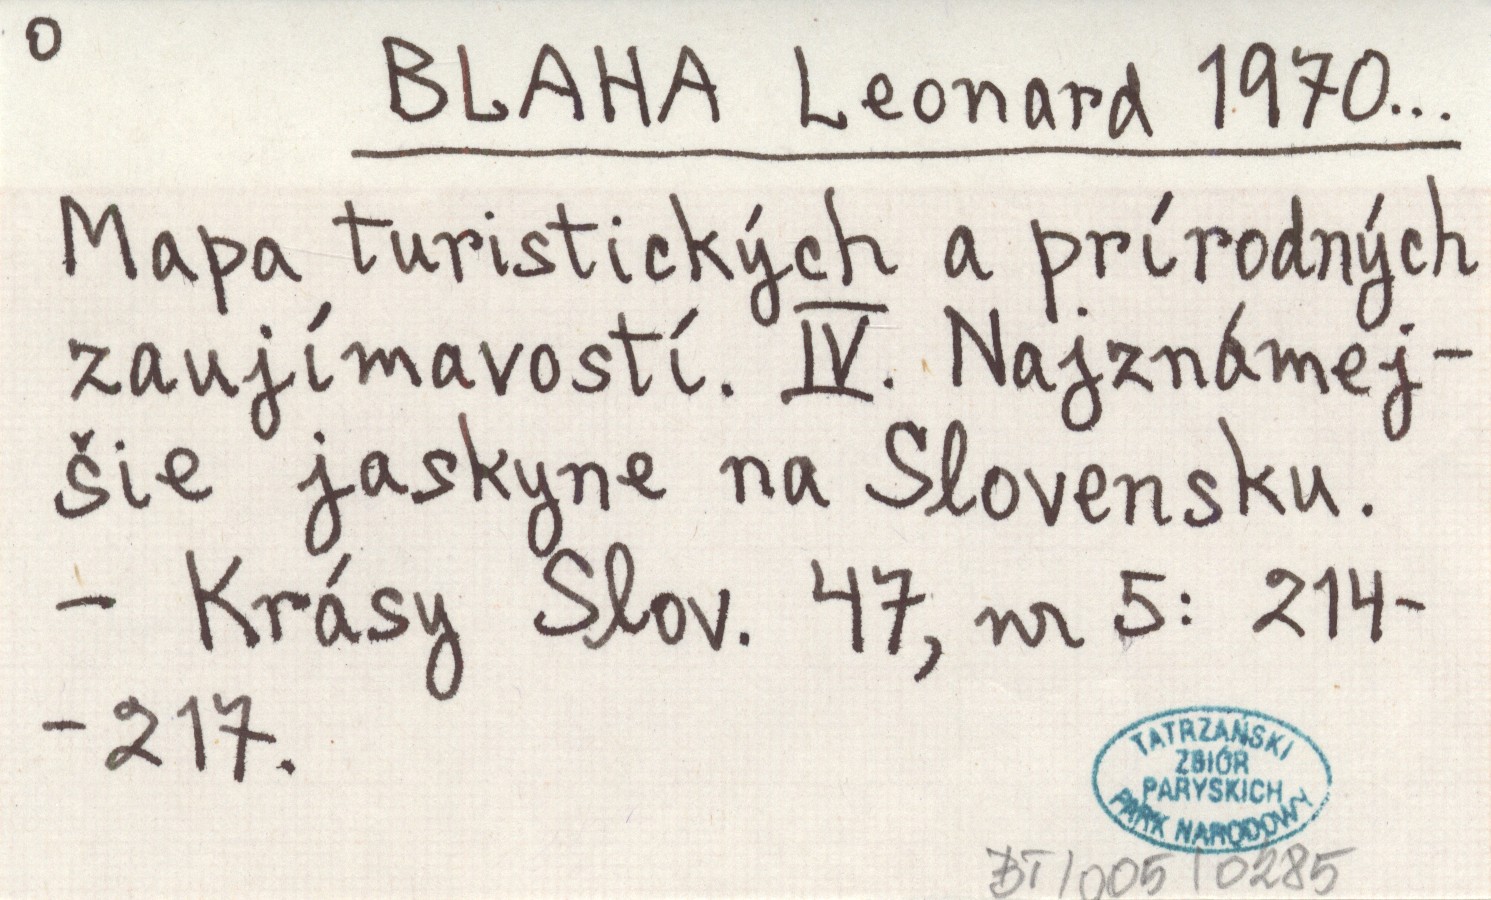 O
BLAHA Leonard 1970...
Mapa turistických a prírodných
zaujímavostí. IV. Najznámej-
šie jaskyne na Slovensku.
- Krásy Slov. 47, nr 5: 214-
-217.
TATRZAŃSKI
ZBIÓR
PARYSKICH
PARK NARODOWY
BT/005/0285